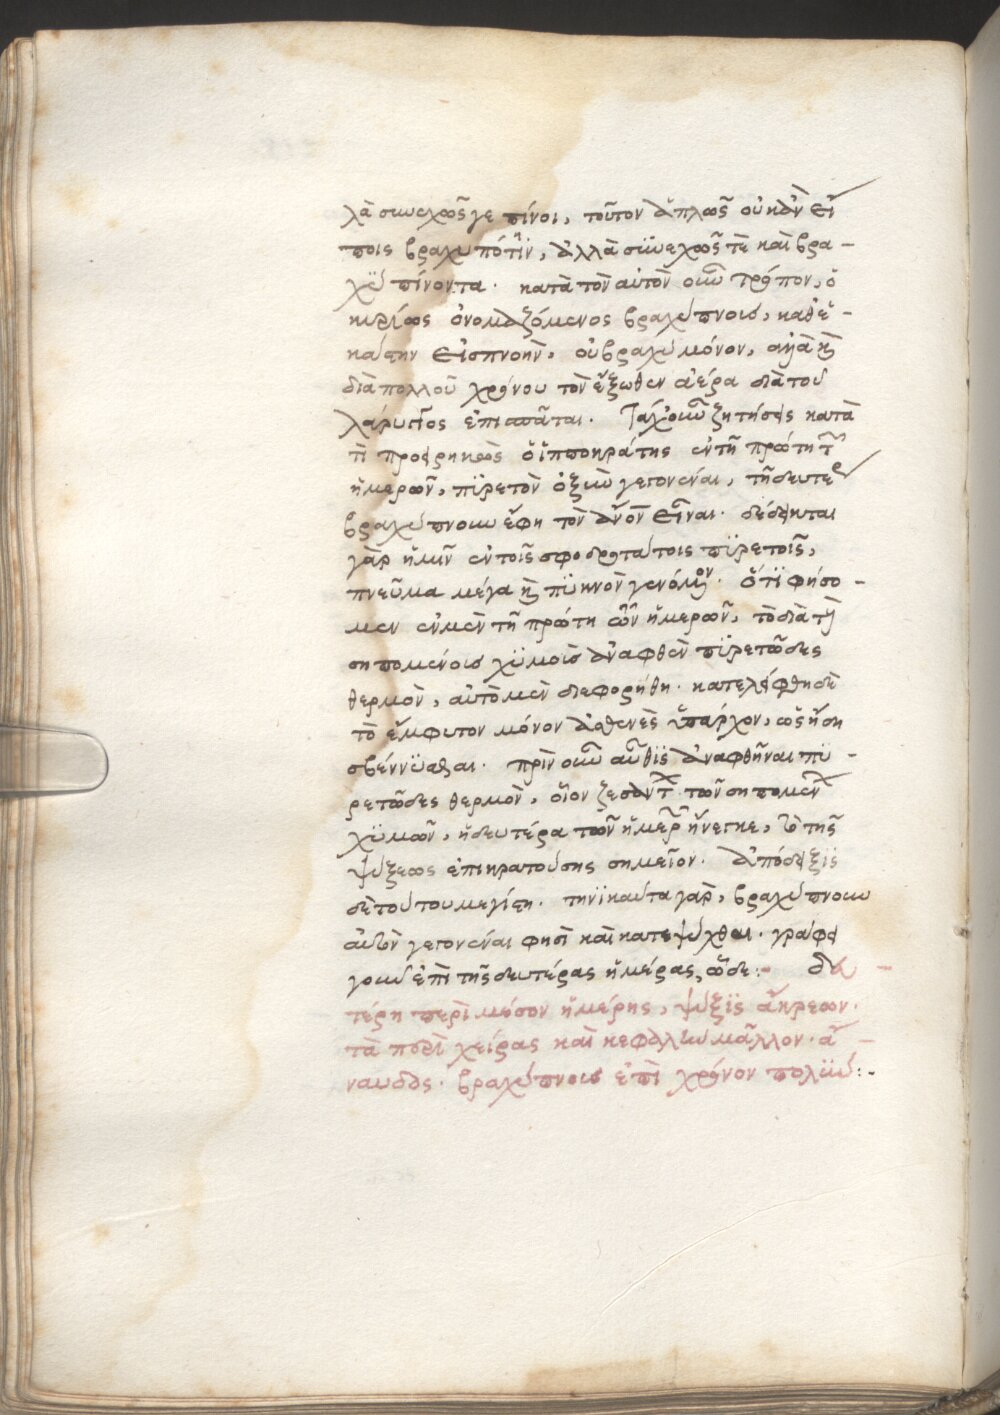 λὰ συνεχῶς γε πίνοι, τοῦτον ἁπλῶς οὐκ ἂν εἴ
ποις βραχυπότην, ἀλλὰ συνεχῶς τὲ καὶ βρα -
χὺ πίνοντα. κατὰ τὸν αὐτὸν οὖν τρόπον, ὁ
κυρίως ὀνομαζόμενος βραχύπνοις, καθ' ἑ -
κάστην εἰσπνοὴν, οὐ βραχὺ μόνον, ἀλλὰ καὶ
διὰ πολλοῦ χρόνου τὸν ἔξωθεν ἀέρα διὰ τοῦ
λάρυγγος ἐπισπᾶται. Τάχ' οὖν ζητήσεις κατὰ
τί προειρηκὼς ὁ ἱπποκράτης ἐν τῇ πρώτῃ τῶν
ἡμερῶν, πυρετὸν ὀξὺν γεγονέναι, τῇ δευτέρᾳ
βραχύπνουν ἔφη τὸν ἄνον εἶναι. δέδεικται
γὰρ ἡμῖν ἐν τοῖς σφοδροτάτοις πυρετοῖς,
πνεῦμα μέγα καὶ πυκνὸν γενόμενον. ὅτι φήσο -
μεν ἐν μὲν τῇ πρώτῃ τῶν ἡμερῶν, τὸ διὰ τῇ
σηπομένοις χυμοῖς ἀναφθὲν πυρετῶδες
θερμὸν, αὐτὸ μὲν διεφορήθη. κατελείφθη δὲ
τὸ ἔμφυτον μόνον ἀσθενὲς ὑπάρχον, ὡς ἤδη
σβέννυσθαι. πρὶν οὖν αὖθις ἀναφθῆναι πυ -
ρετῶδες θερμὸν, οἷον ζεσάντων τῶν σηπομένων
χυμῶν, ἡ δευτέρα τῶν ἡμερῶν ἤνεγκε, τὸ τῆς
ψύξεως ἐπικρατούσης σημεῖον. ἀπόδειξις
δὲ τούτου μεγίστη. τηνικαῦτα γὰρ, βραχύπνουν
αὐτὸν γεγονέναι φησὶ καὶ κατεψύχθαι. γράφει
γοῦν ἐπὶ τῆς δευτέρας ἡμέρας, ὧδε :- δευ -
τέρῃ περὶ μέσον ἡμέρης, ψύξις ἀκρέων.
τὰ περὶ χεῖρας καὶ κεφαλὴν μᾶλλον. ἄ -
ναυδος. βραχύπνοις ἐπὶ χρόνον πολύν :-